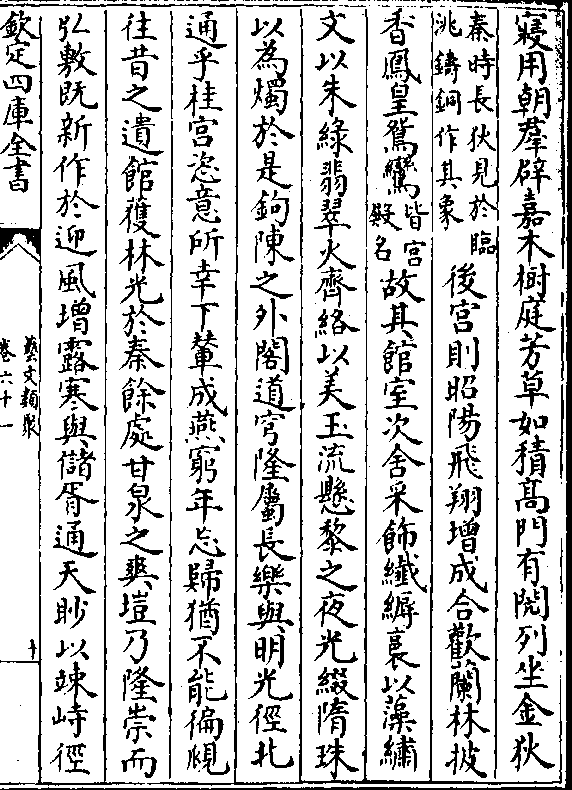 寢用朝羣辟嘉木樹庭芳草如積高門有閌列坐金狄
秦時長狄見於臨
洮鑄銅作其象
後宮則昭陽飛翔增成合歡蘭林披
香鳳皇鴛鸞
皆宮
殿名
故其館室次舍采飾纖縟裛以藻繡
文以朱綠翡翠火齊絡以美玉流懸黎之夜光綴隋珠
以為燭於是鉤陳之外閣道穹隆屬長樂與明光徑北
通乎桂宮恣意所幸下輦成燕窮年忘歸猶不能徧覛
往昔之遺館獲林光於秦餘處甘泉之爽塏乃隆崇而
弘敷既新作於迎風增露寒與儲胥通天眇以竦峙徑
欽定四庫全書
藝文類聚
卷六十一